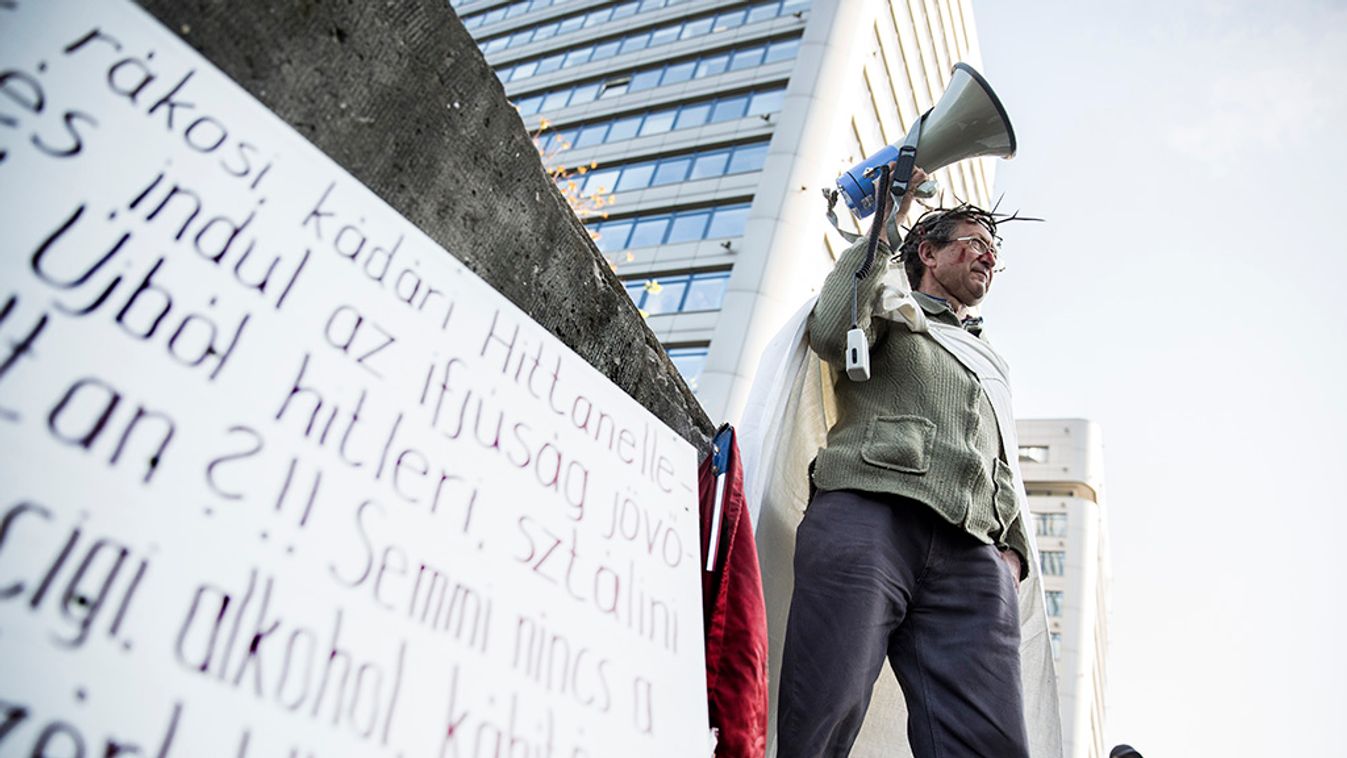 rákosi, kádári Hittanelle-
és indul az ifjúság jövő-
Újból hitleri, sztálini
tan?!! Semmi nincs a
cigi, alkohol,